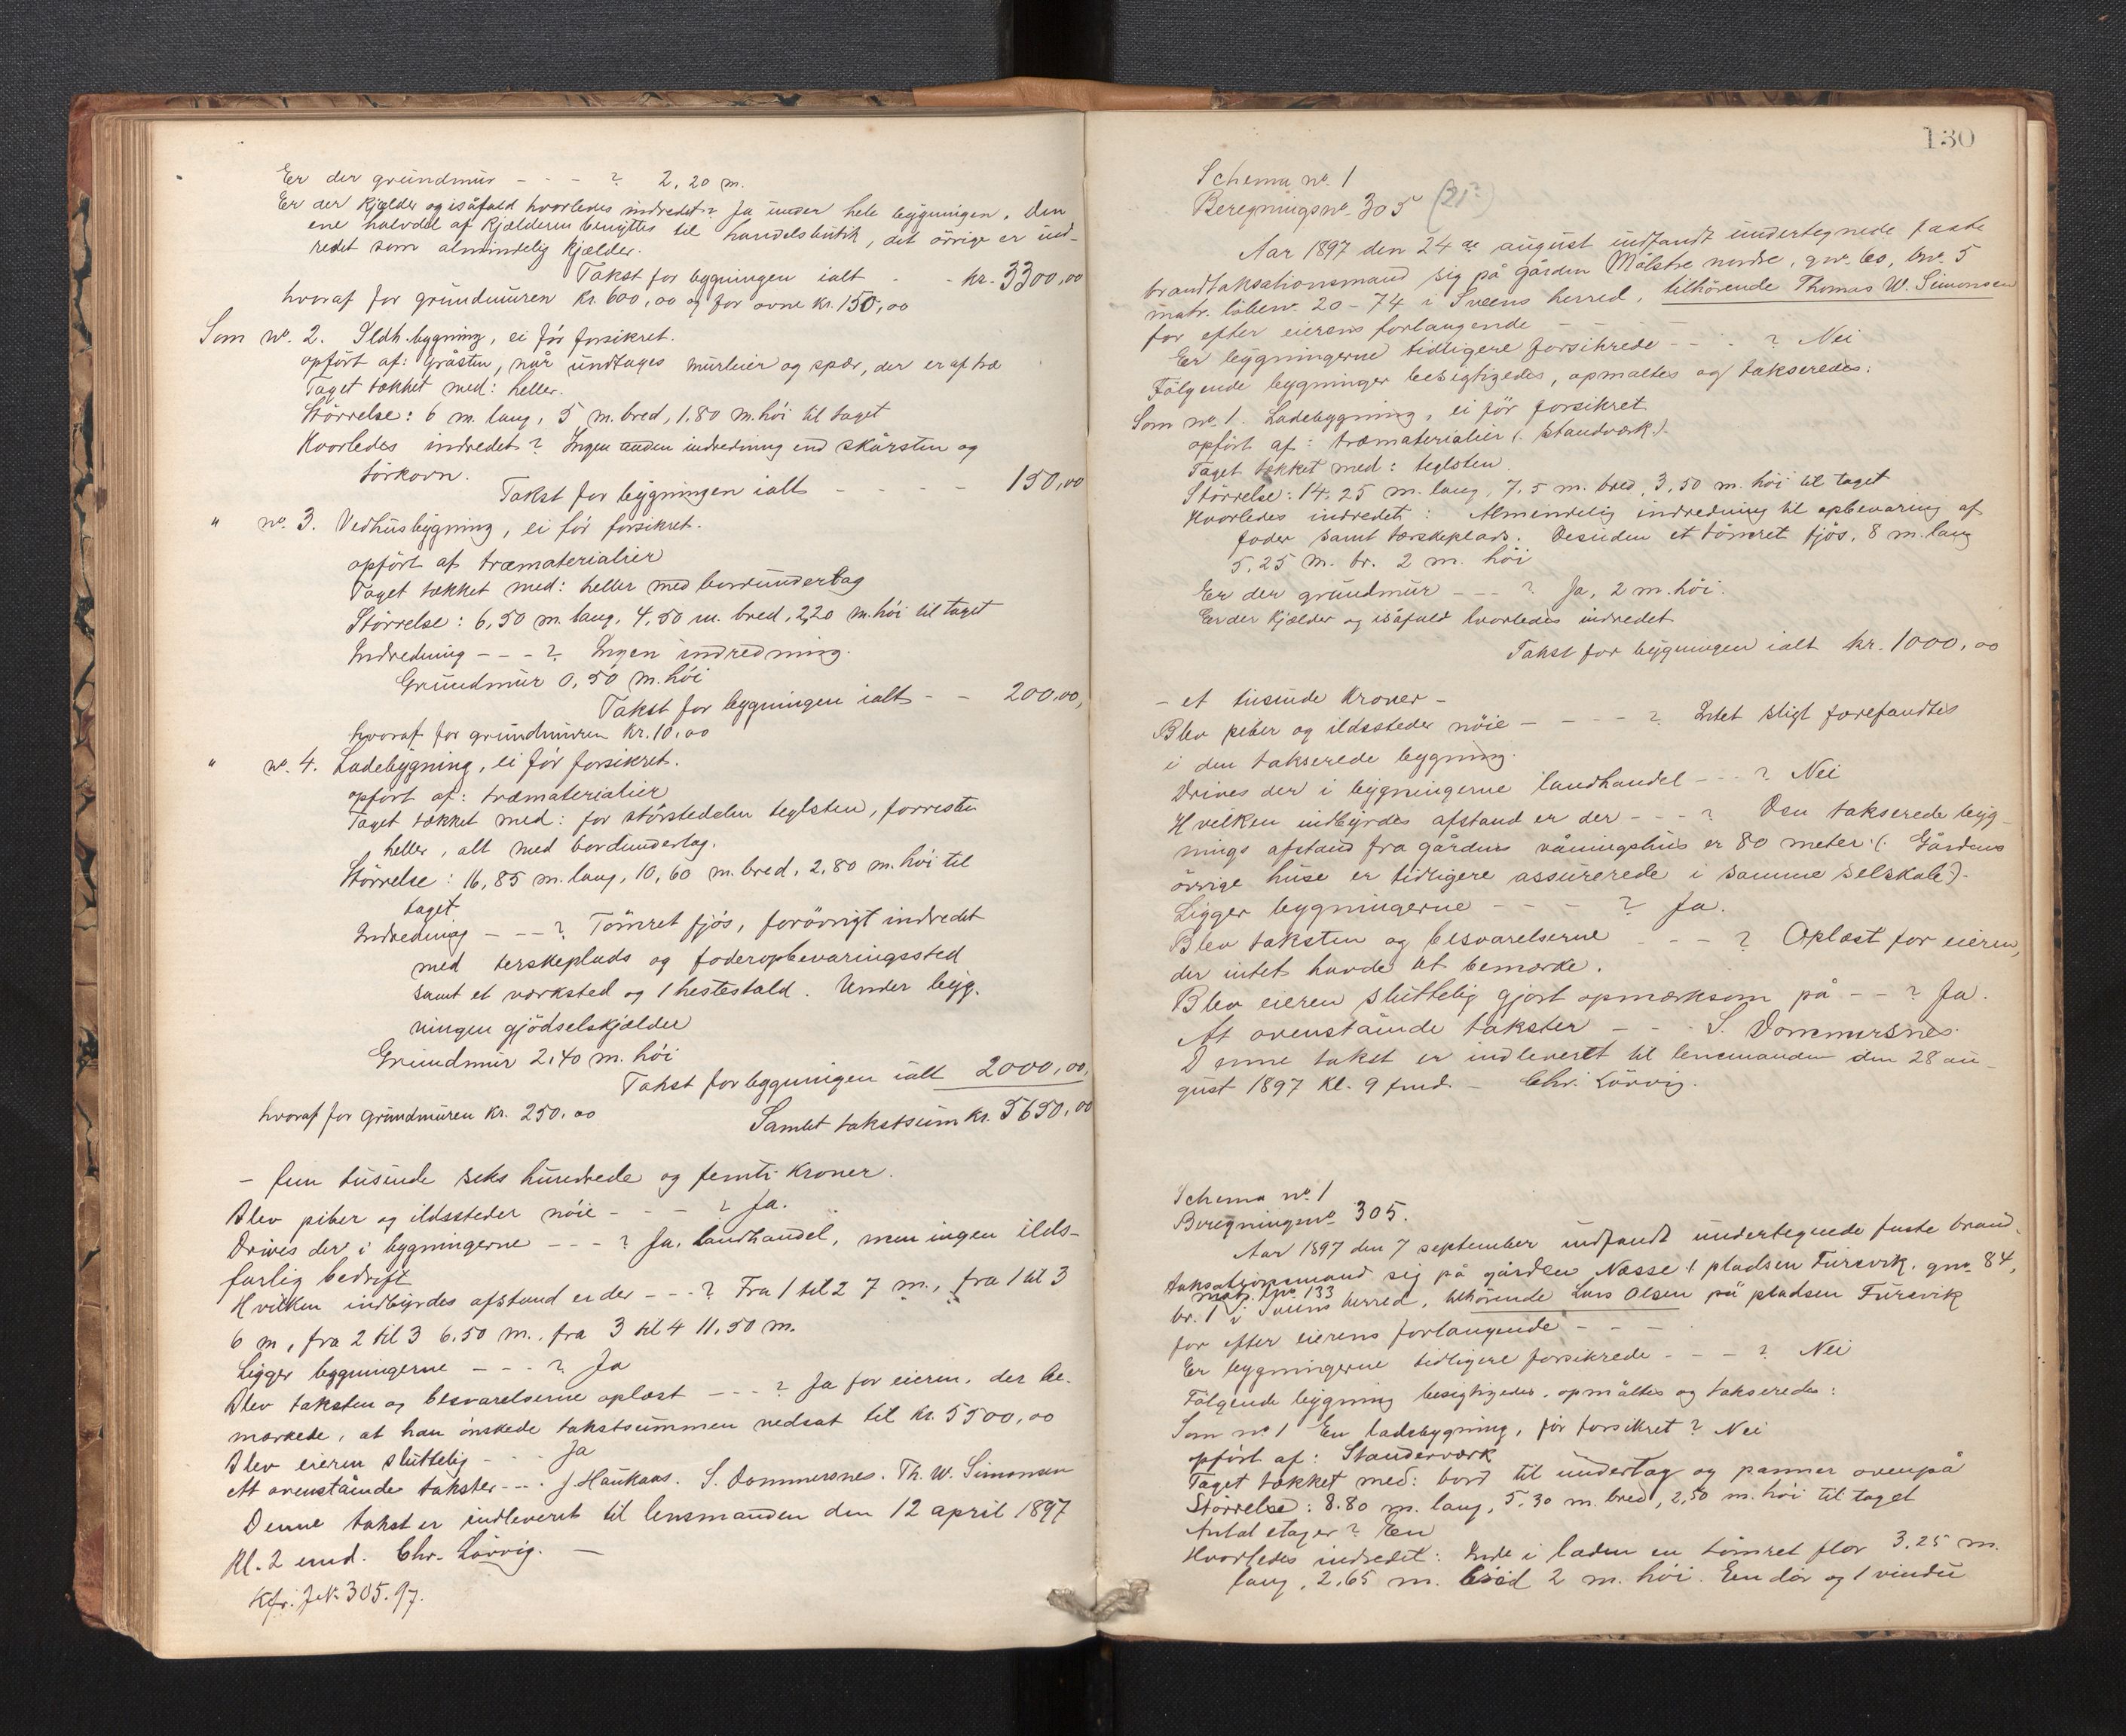 Er der grundmur - - - ? 2,20 m.
Er der kjelder og isåfald hvorledes indredet? Ja under hele bygningen. Den
ene halvdel af kjelderen benyttes til handelsbutik, det övrige er ind-
redet som almindelig kjelder.
Takst for bygningen ialt - - kr. 3300,00
hvoraf for grundmuren kr. 600,00 og for ovne kr. 150,00
Som no. 2. Ildh. bygning, ei för forsikret.
opfört af: Gråsten, når undtages mурleier og spær, der er af træ
Taget tækket med: heller.
Störrelse: 6 m. lang, 5 m. bred, 1,80 m. höi til taget
Hvorledes indredet? Ingen anden indredning end skårsten og
törkovn.
Takst for bygningen ialt - - - - 150,00
" no. 3. Vedhusbygning, ei för forsikret.
opfört af træmaterialier
Taget tækket med: heller med bordundertag
Störrelse: 6,50 m. lang, 4,50 m. bred, 2,20 m. höi til taget
Indredning - - - ? Ingen indredning.
Grundmur 0,50 m. höi
Takst for bygningen ialt - - 200,00,
hvoraf for grundmuren kr. 10,00
" no. 4. Ladebygning, ei för forsikret.
opfört af: træmaterialier
Taget tækket med: for störstedelen teglsten, forresten
heller, alt med bordundertag.
Störrelse: 16,85 m. lang, 10,60 m. bred, 2,80 m. höi til
taget
Indredning - - - ? Tömret fjös, forövrigt indredet
med terskeplads og foderopbevaringssted
samt et værksted og 1 hestestald. Under byg-
ningen gjödselskjælder
Grundmur 2,40 m. höi
Takst for bygningen ialt 2000,00,
hvoraf for grundmuren kr. 250,00
Samlet takstsum kr. 5650,00
- fem tusinde seks hundrede og femti kroner.
Blev piber og ildssteder nöie - - - ? Ja.
Drives der i bygningerne - - - ? Ja, landhandel, men ingen ilds-
farlig bedrift
Hvilken indbyrdes afstand er der - - - ? Fra 1 til 2 7 m., fra 1 til 3
6 m, fra 2 til 3 6.50 m., fra 3 til 4 11.50 m.
Ligger bygningerne - - - ? Ja
Blev taksten og besvarelserne oplæst - - - ? Ja for eieren, der be-
mærkede, at han önskede takstsummen nedsat til kr. 5500,00
Blev eieren sluttelig - - - Ja
At ovenstående takster - - - J. Haukaas. S. Dommersnes. Th. W. Simonsen
Denne takst er indleveret til lensmanden den 12 april 1897
Kl. 2 emd. Chr. Lörvig. -
Kfr. J.N. 305.97.
130
Schema no. 1
Beregningsno. 305 (21?)
Aar 1897 den 24de august indfandt undertegnede faste
brandtaksationsmand sig på gården Målstre nordre, gno. 60, bno. 5
matr. löbeno. 20 - 74 i Sveens herred, tilhörende Thomas W. Simonsen
for efter eierens forlangende - - -
Er bygningerne tidligere forsikrede - - - ? Nei
Fölgende bygninger besigtigedes, opmaltes og takseredes:
Som no. 1. Ladebygning, ei för forsikret
opfört af: træmaterialier (: standværk :).
Taget tækket med: teglsten.
Störrelse: 14,25 m. lang, 7,5 m. bred, 3,50 m. höi til taget
Hvorledes indredet: Almendelig indredning til opbevaring af
foder samt tærskeplads. Desuden et tömret fjös, 8 m. lang
5,25 m. br. 2 m. höi
Er der grundmur - - - ? Ja, 2 m. höi.
Er der kjælder og isåfald hvorledes indredet
Takst for bygningen ialt kr. 1000,00
- et tusinde kroner -
Blev piber og ildssteder nöie - - - - ? Intet sligt forefandtes
i den takserede bygning.
Drives der i bygningerne landhandel - - - ? Nei
Hvilken indbyrdes afstand er der - - - ? Den takserede byg-
nings afstand fra gårdens våningshus er 80 meter (: Gårdens
övrige huse er tidligere assurerede i samme selskab:).
Ligger bygningerne - - - - ? Ja.
Blev taksten og besvarelserne - - - ? Oplæst for eieren,
der intet havde at bemærke.
Blev eieren sluttelig gjort opmærksom på - - ? Ja.
At ovenstående takster - - - S. Dommersnes.
Denne takst er indleveret til lensmanden den 28 au-
gust 1897 kl. 9 fmd. - Chr. Lörvig.
Schema no. 1
Beregningsno. 305.
Aar 1897 den 7 september indfandt undertegnede faste brand-
taksationsmand sig på gården Næsse, pladsen Fursvik, gno. 84,
matr. lno. 133
br. 1 i Sveens herred, tilhörende Lars Olsen på pladsen Fursvik
for efter eierens forlangende - - -
Er bygningerne tidligere forsikrede - - - ? Nei
Fölgende bygning besigtigedes, opmåltes og takseredes:
Som no. 1 En ladebygning, för forsikret? Nei
opfört af: Standerværk
Taget tækket med: bord til undertag og panner ovenpå
Störrelse: 8.80 m. lang, 5.30 m. bred, 2,50 m. höi til taget
Antal etager? En
Hvorledes indredet: Inde i laden en tömret flor 3.25 m.
lang, 2,65 m. bred 2 m. höi. En dör og 1 vindu